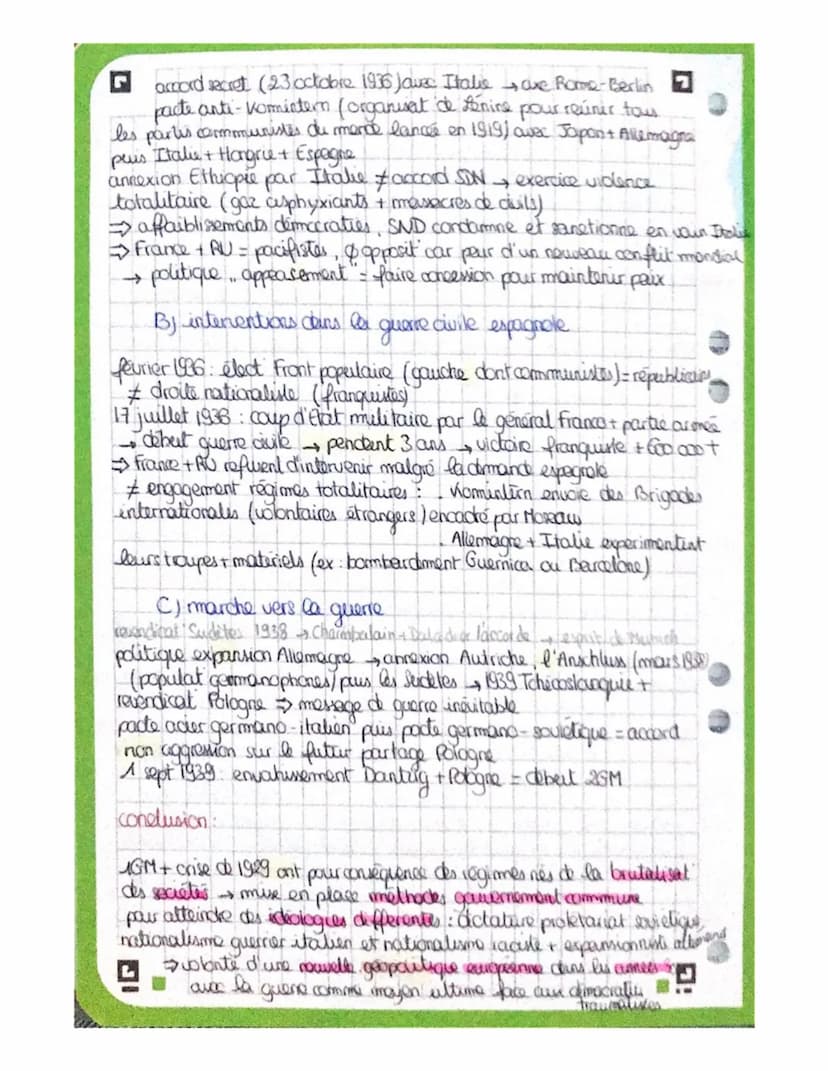 accord secret (23 octobre 1936) avec Italie → axe Rome-Berlin
pacte anti-Komintern (organisat° de Lénine pour réunir tous
les partis communistes du monde lancé en 1919) avec Japon + Allemagne
puis Italie + Hongrie + Espagne
annexion Ethiopie par Italie ≠ accord SDN → exercice violence
totalitaire (gaz asphyxiants + massacres de civils)
⇒ affaiblissements démocraties, SND condamne et sanctionne en vain Italie
⇒ France + RU = pacifistes, ϕ opposit° car peur d'un nouveau conflit mondial
→ politique "appeasement" = faire concession pour maintenir paix
B) interventions dans la guerre civile espagnole
février 1936 : élect° Front populaire (gauche dont communistes) = républicains
≠ droite nationaliste (franquistes)
17 juillet 1936 : coup d'Etat militaire par le général Franco + partie armée
→ début guerre civile → pendant 3 ans → victoire franquiste + 600 000 †
⇒ France + RU refusent d'intervenir malgré la demande espagnole
≠ engagement régimes totalitaires : . Komintern envoie des Brigades
internationales (volontaires étrangers) encadré par Moscou
. Allemagne + Italie expérimentent
leurs troupes + matériels (ex : bombardement Guernica ou Barcelone)
C) marche vers la guerre
revendicat° Sudètes 1938 → Chamberlain + Daladier l'accorde → esprit de Munich
politique expansion Allemagne → annexion Autriche, l'Anschluss (mars 1938)
(populat° germanophones) puis les Sudètes → 1939 Tchécoslovaquie +
revendicat° Pologne ⇒ message de guerre inévitable
pacte acier germano-italien puis pacte germano-soviétique = accord
non aggression sur le futur partage Pologne
1 sept 1939 : envahissement Dantzig + Pologne = début 2GM
conclusion :
1GM + crise de 1929 ont pour conséquence des régimes nés de la brutalisat°
des sociétés → mise en place méthodes gouvernement commune
pour atteindre des idéologies différentes : dictature prolétariat soviétique,
nationalisme guerrier italien et nationalisme raciste + expansionniste allemand
⇒ volonté d'une nouvelle géopolitique européenne dans les années
avec la guerre comme moyen ultime face aux démocraties
traumatisées